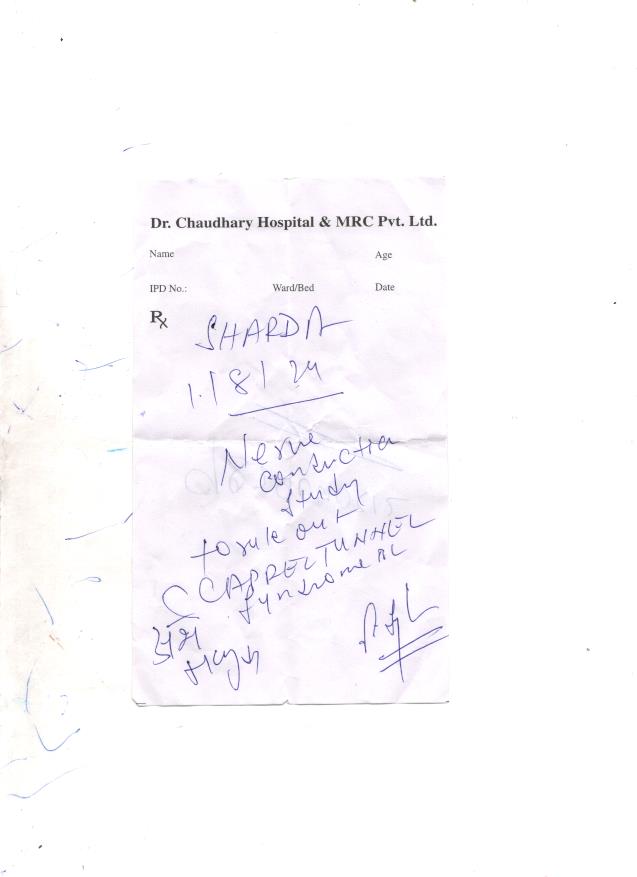 Dr. Chaudhary Hospital & MRC Pvt. Ltd.
Name Age
IPD No.: Ward/Bed Date
Rx
SHARDA
1/8/24
Nerve
Conduction
Study
to rule out
CARPEL TUNNEL
Syndrome BL